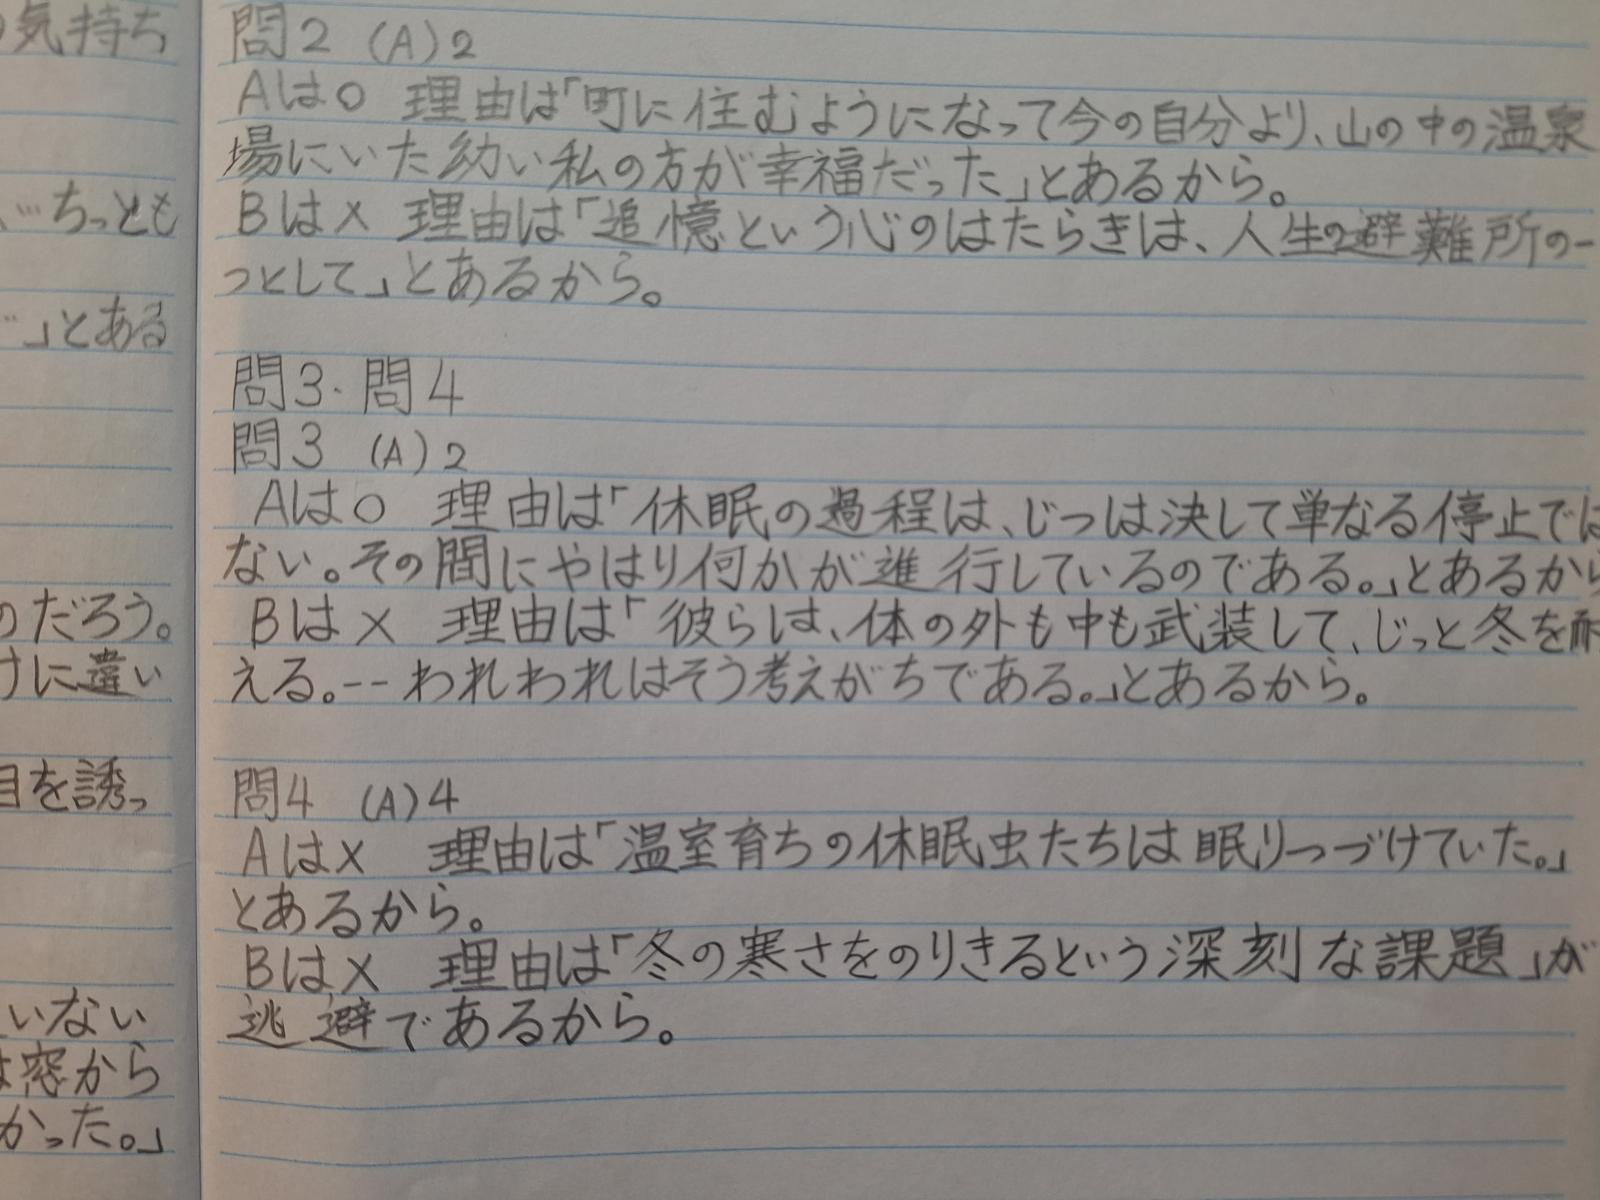 気持ち
…ちっとも
」とある
のだろう。
けに違い
目を誘っ
いない
は窓から
かった。」
問2 (A)2
Aは○ 理由は「町に住むようになって今の自分より、山の中の温泉
場にいた幼い私の方が幸福だった」とあるから。
Bは× 理由は「追憶という心のはたらきは、人生の避難所の一
つとして」とあるから。
問3・問4
問3 (A)2
Aは○ 理由は「休眠の過程は、じつは決して単なる停止では
ない。その間にやはり何かが進行しているのである。」とあるから
Bは× 理由は「彼らは、体の外も中も武装して、じっと冬を耐
える。--われわれはそう考えがちである。」とあるから。
問4 (A)4
Aは× 理由は「温室育ちの休眠虫たちは眠りつづけていた。」
とあるから。
Bは× 理由は「冬の寒さをのりきるという深刻な課題」が
逃避であるから。